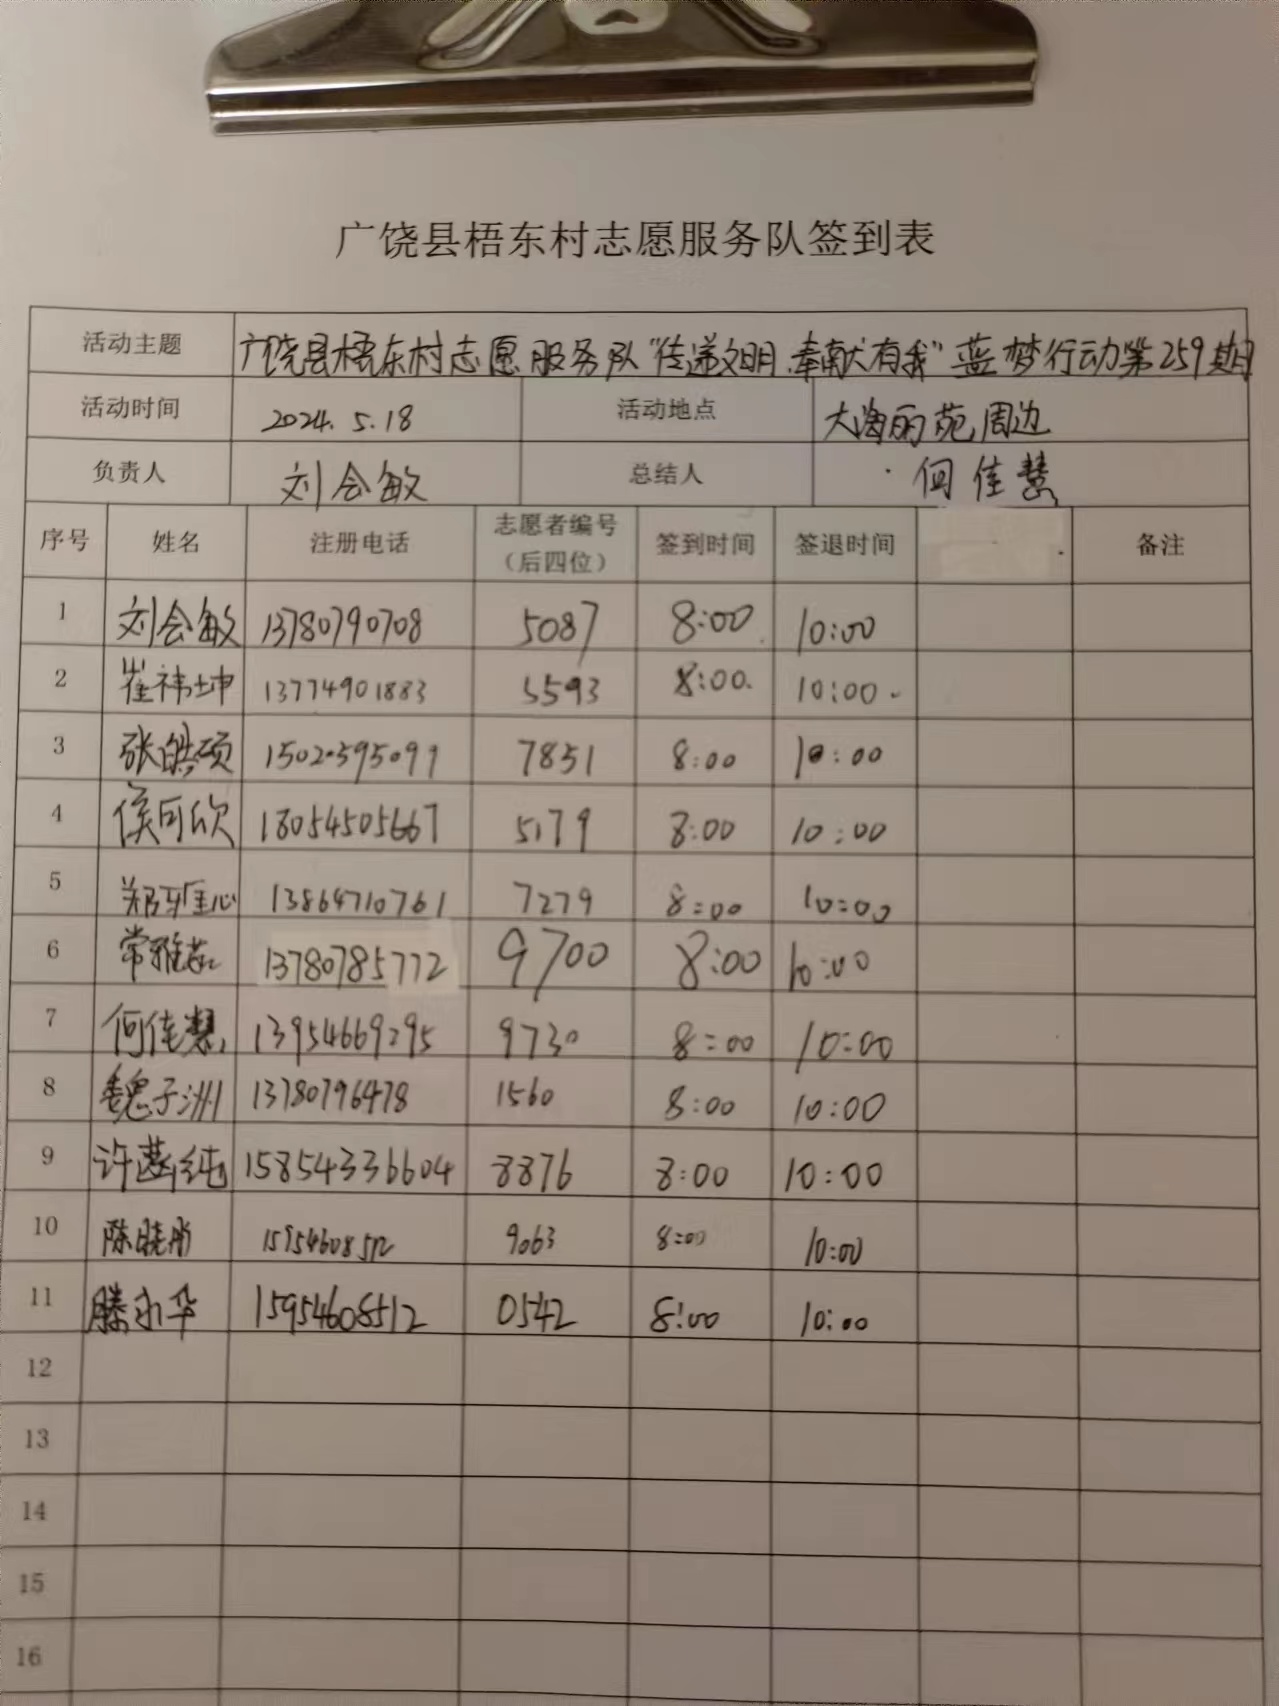 广饶县梧东村志愿服务队签到表
活动主题 广饶县梧东村志愿服务队“传递文明、奉献有我”蓝梦行动第259期
活动时间 2024.5.18 活动地点 大海丽苑周边
负责人 刘会敏 总结人 何佳慧
序号 姓名 注册电话 志愿者编号（后四位） 签到时间 签退时间 备注
1 刘会敏 13780790708 5087 8:00 10:00
2 崔祎坤 13774901883 5593 8:00 10:00
3 张皓硕 15020595099 7851 8:00 10:00
4 侯可欣 18054505667 5179 8:00 10:00
5 郑雅心 13864710761 7279 8:00 10:00
6 常雅茹 13780785772 9700 8:00 10:00
7 何佳慧 13954669295 9730 8:00 10:00
8 魏子洲 13780796478 1560 8:00 10:00
9 许菡纯 15854336604 8876 8:00 10:00
10 陈晓彤 15954608512 9063 8:00 10:00
11 滕永华 15954608512 0542 8:00 10:00
12
13
14
15
16